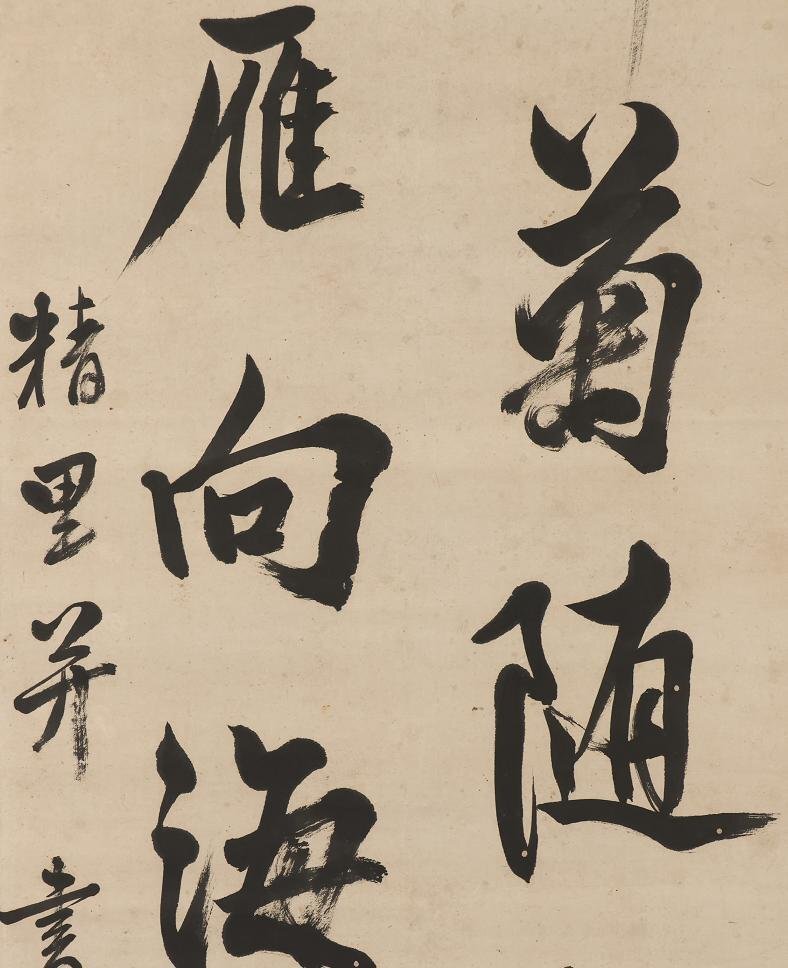 菊随
雁向海
精里并書